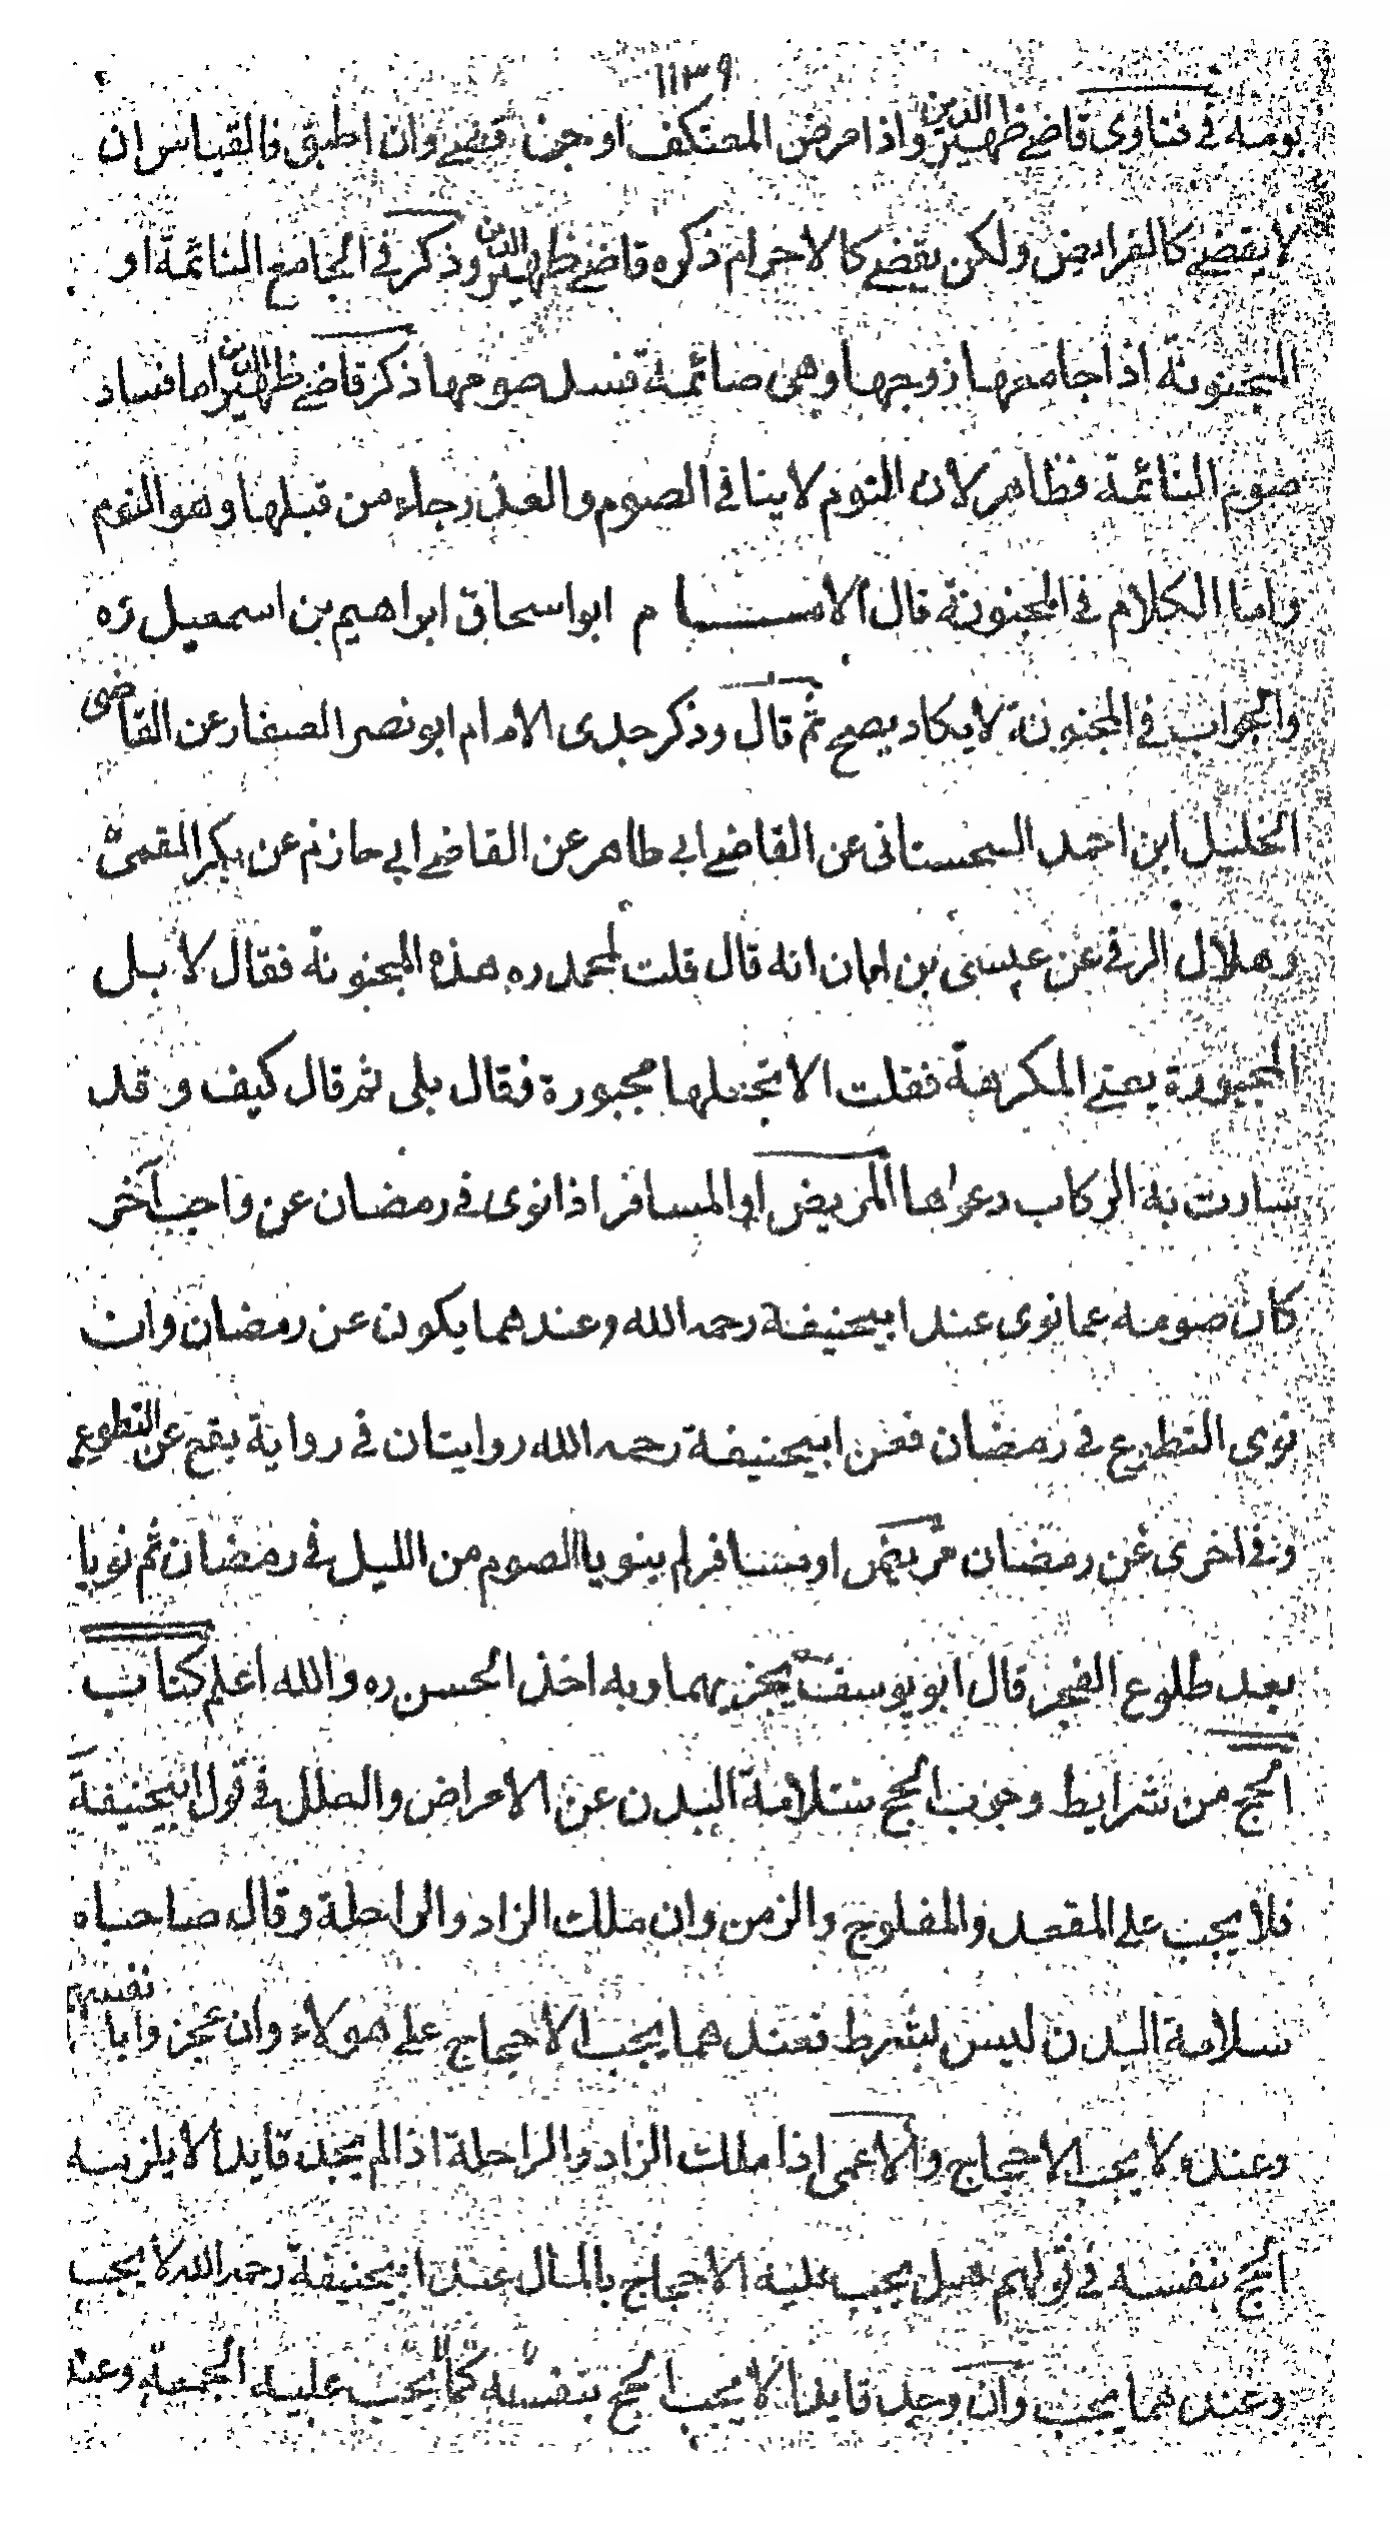 ١١٣٩
يومه في فتاوى قاضي ظهير الدين واذا مرض المعتكف او جن قضى وان اطبق فالقياس ان
لا يقضي كالفرايض ولكن يقضي كالاحرام ذكره قاضي ظهير الدين وذكر في الجامع النائمة او
المجنونة اذا جامعها زوجها وهى صائمة فسد صومها ذكر قاضي ظهير الدين اما فساد
صوم النائمة فظاهر لان النوم لا ينافي الصوم والعذر جاء من قبلها وهو النوم
واما الكلام في المجنونة قال الامــــام ابو اسحاق ابراهيم بن اسمعيل ره
والجواب في المجنونة لا يكاد يصح ثم قال وذكر جدى الامام ابو نصر الصفار عن القاضى
الخليل ابن احمد السجستانى عن القاضي ابي طاهر عن القاضي ابي حازم عن بكر القمىّ
وهلال الرقي عن عيسى بن ابان انه قال قلت لمحمد ره هذه المجنونة فقال لا بل
المجبورة يعني المكرهة فقلت الا تجعلها مجبورة فقال بلى ثم قال كيف وقد
سارت به الركاب دعوها المريض او المسافر اذا نوى في رمضان عن واجب آخر
كان صومه عما نوى عند ابيحنيفة رحمه الله وعندهما يكون عن رمضان وان
نوى التطوع في رمضان فعن ابيحنيفة رحمه الله روايتان في رواية يقع عن التطوع
وفي اخرى عن رمضان مريض او مسافر لم ينويا الصوم من الليل في رمضان ثم نويا
بعد طلوع الفجر قال ابو يوسف يجزيهما وبه اخذ الحسن ره والله اعلم كتاب
الحج من شرايط وجوب الحج سلامة البدن عن الامراض والعلل في قول ابيحنيفة
فلا يجب على المقعد والمفلوج والزمن وان ملك الزاد والراحلة وقال صاحباه
سلامة البدن ليس بشرط فعندهما يجب الاحجاج على هولاء وان عجزوا بانفسهم
وعنده لا يجب الاحجاج والاعمى اذا ملك الزاد والراحلة اذا لم يجد قايدا لا يلزمه
الحج بنفسه في قولهم هل يجب عليه الاحجاج بالمال عند ابيحنيفة رحمه الله لا يجب
وعندهما يجب وان وجد قايدا لا يجب الحج بنفسه كما يجب عليه الجمعة وعند